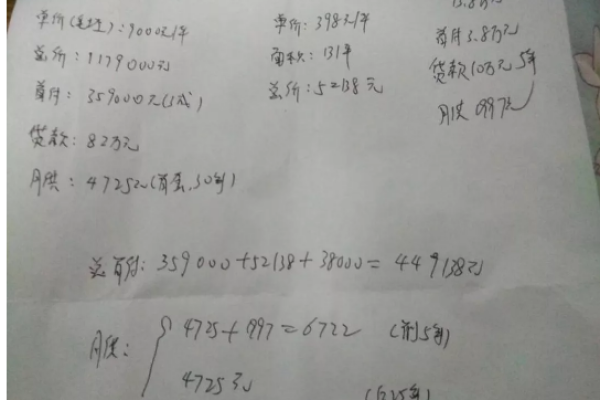 单价(毛坯):9000元/平
总价:1179000元
首付:359000元(3成)
贷款:82万元
月供:4725元(首套,30年)
单价:398元/平
面积:131平
总价:52138元
13.8万元
首付3.8万元
贷款10万元 5年
月供1997元
总首付:359000+52138+38000=449138元
月供:
4725+1997=6722 (前5年)
4725元 (后25年)